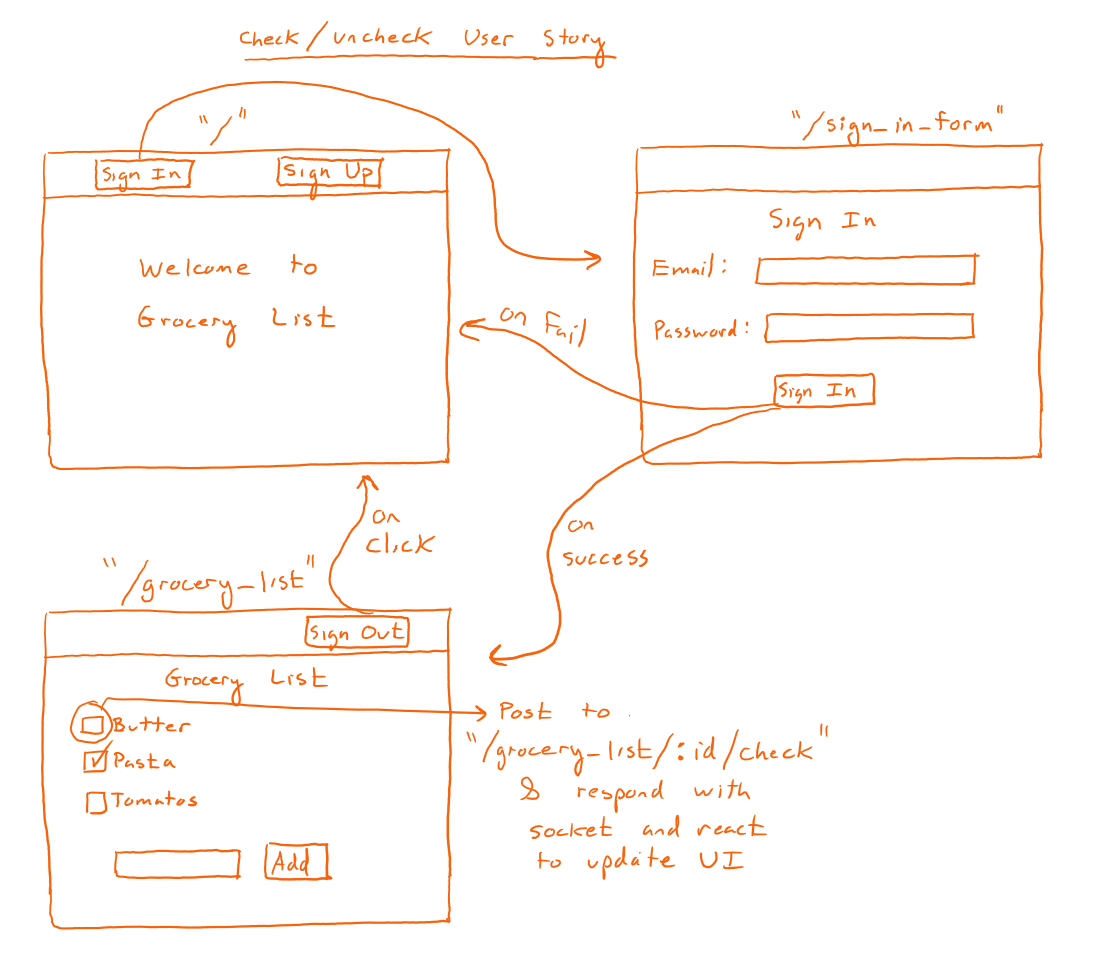 Check/uncheck User Story
"/"
Sign In
Sign Up
Welcome to
Grocery List
"/sign_in_form"
Sign In
Email:
Password:
Sign In
on Fail
on
success
on
click
"/grocery_list"
Sign Out
Grocery List
Butter
Pasta
Tomatos
Add
Post to
"/grocery_list/:id/check"
& respond with
socket and react
to update UI